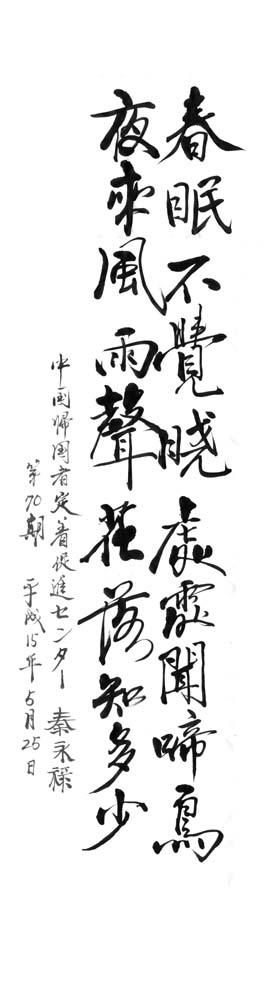 春眠不覺曉處處聞啼鳥
夜來風雨聲花落知多少
中国帰国者定着促進センター 秦永禄
第70期 平成15年5月25日